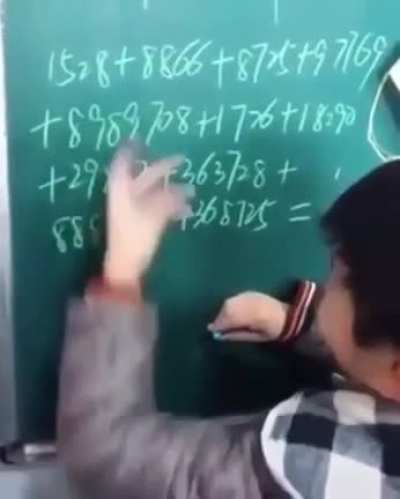 1528+8866+8725+97769
+8989708+1726+18290
+363728+
+368725=